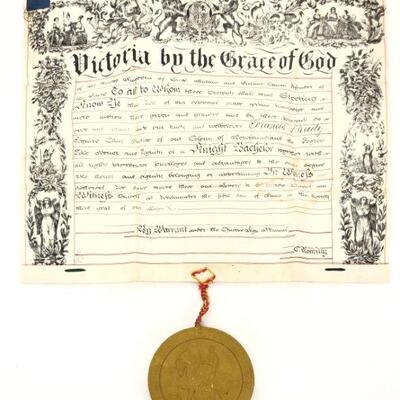 Victoria by the Grace of God
of the United Kingdom of Great Britain and Ireland Queen Defender of
the Faith To all to Whom these Presents shall come Greeting
Know Ye that We of our especial grace certain knowledge and
mere motion have given and granted and by these presents do
give and grant unto our trusty and well beloved Francis
Esquire Chief Justice of our Colony of Newfoundland Degree
Title Honour and Dignity of a Knight Bachelor together with
all rights privileges and advantages to the same degree
title honour and dignity belonging or appertaining In Witness
whereof We have caused these our Letters to be made Patent
Witness Ourself at Westminster the fifth day of in the twenty
year of our Reign
By Warrant under the Queen's Sign Manual
C. Romilly